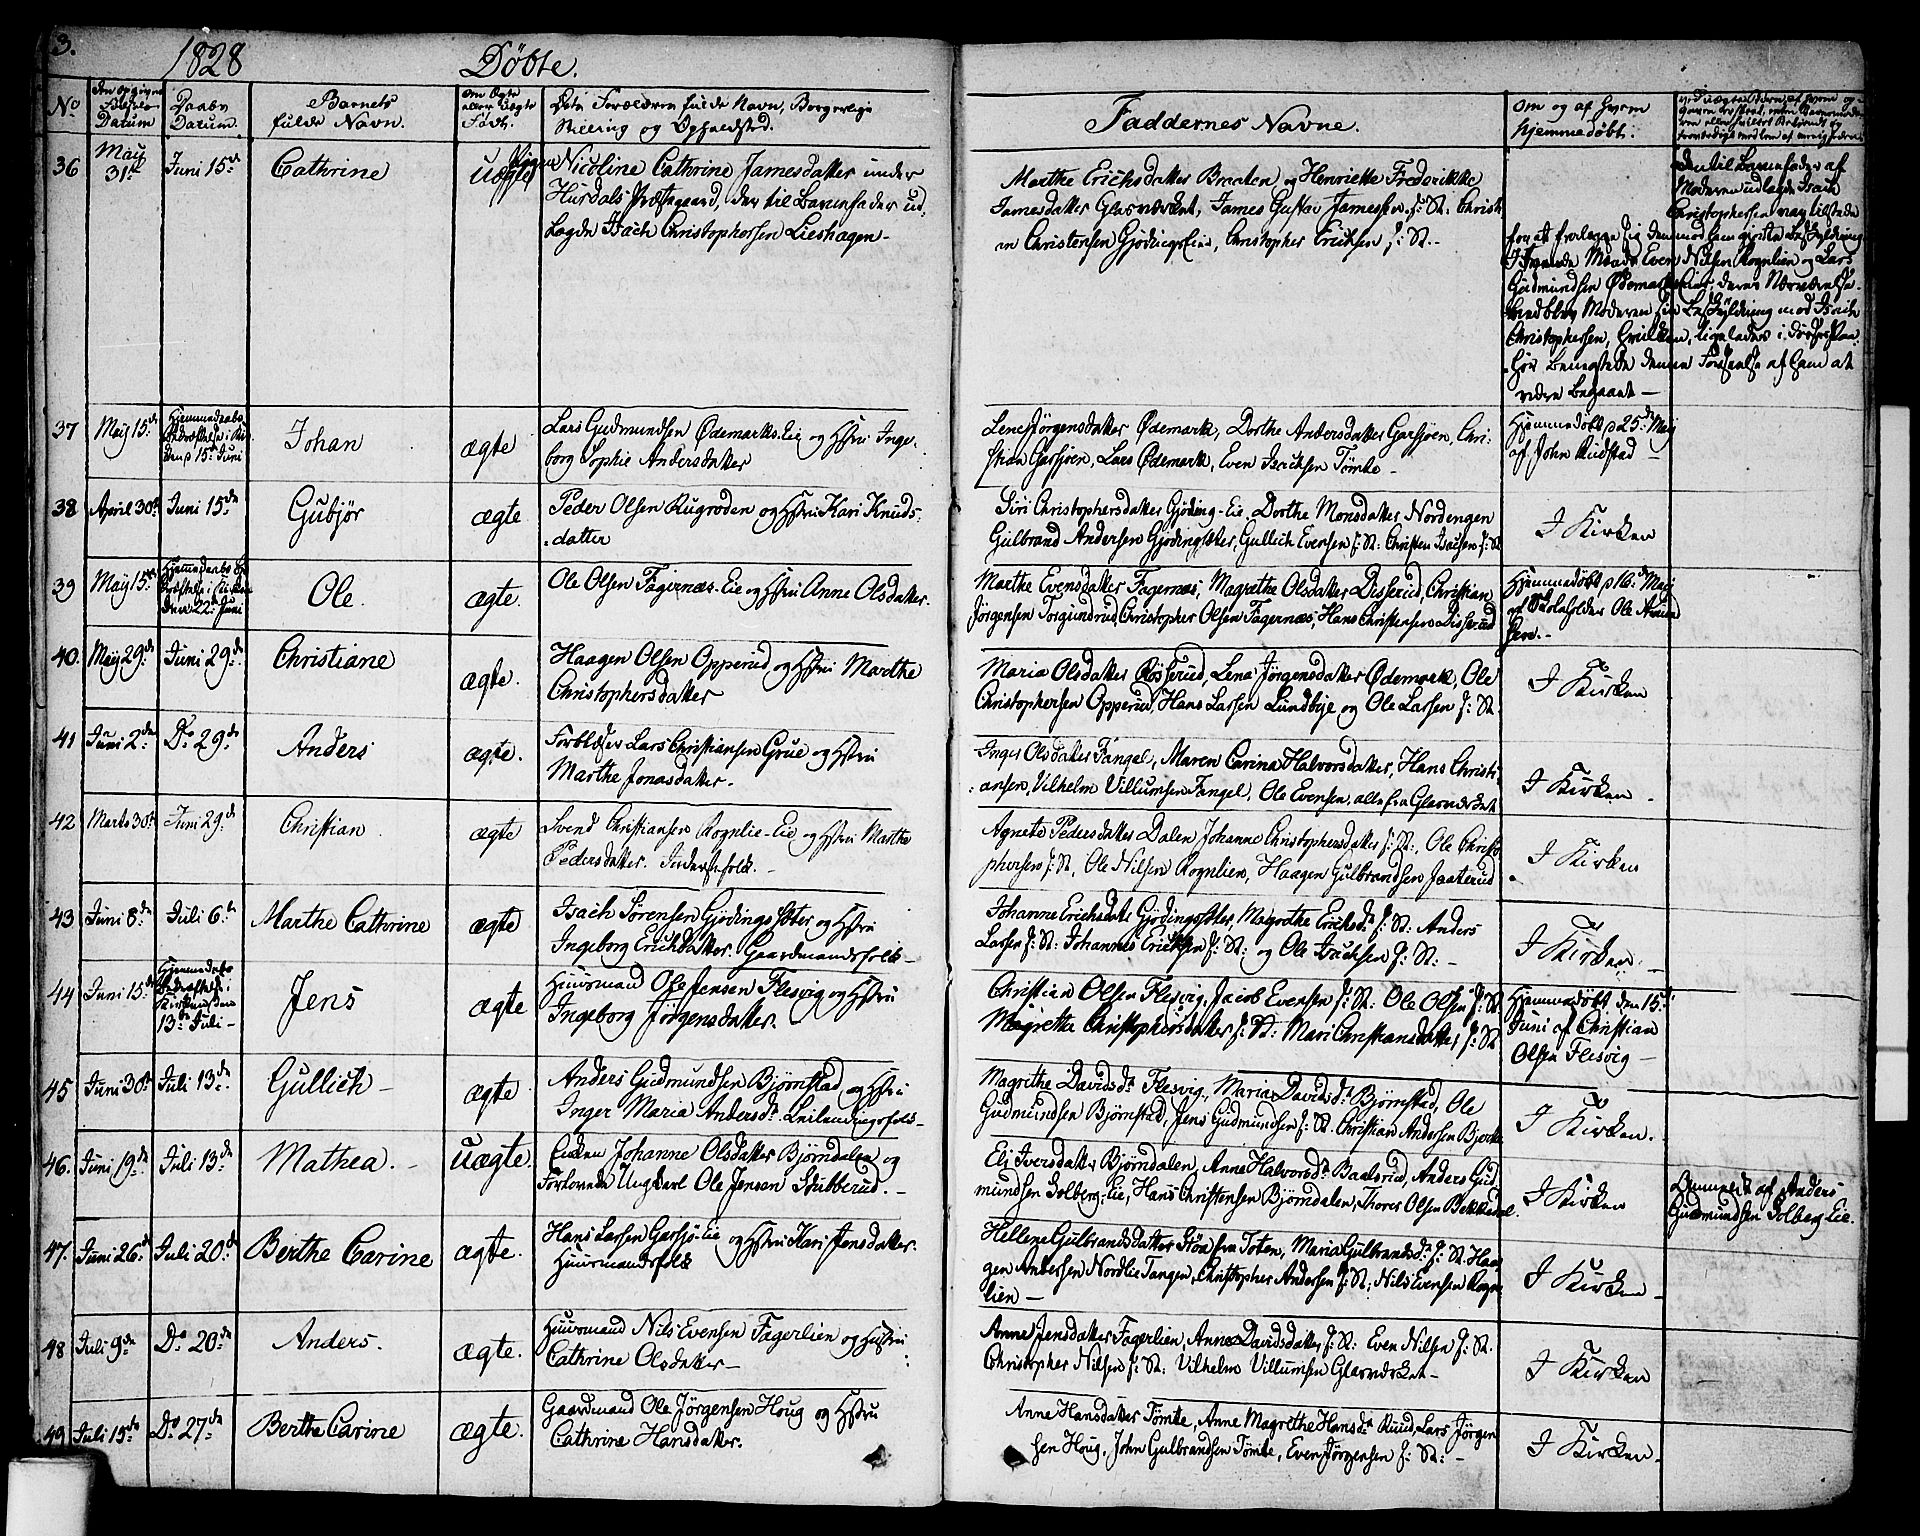 3.
1828 Døbte.
No
den opgivne Fødsels Datum
Daabs Datum.
Barnets fulde Navn.
om Ægte eller Uægte Født.
Deres Forældres fulde Navn, Borgerlige Stilling og Opholdsted.
Faddernes Navne.
om og af hvem hjemmedøbt.
36 May 31te Juni 15de Cathrine uægte Pigen Nicoline Cathrine Jamesdatter under
Hurdals Præstegaard, der til Barnefader ud-
lagde Isach Christophersen Lieshagen
Marthe Erichsdatter Braaten og Henriette Frederikke
Jamesdatter Glasværket, James Gustav Jamesen J: St: Christi
an Christensen Gjødingseie, Christopher Erichsen J: St.
Den til Barnefader af
Moderen udlagde Isach
Christophersen var tilstede
for at fralægge sig den mod ham gjorte Beskyldning
Mænd Even Nilsen Rognlien og Lars
Gudmundsen Ødemarks Eie, i deres Nærværelse
vedblev Moderen sin Beskyldning mod Isach
Christophersen, hvilken, ligeledes i
hør benegtede denne Forseelse af ham at
være begaaet
37 May 15de Hjemmedaabs Bekræftelse i Kirken d. 15de Juni Johan ægte Lars Gudmundsen Ødemarks-Eie og Hstru Inge-
borg Sophie Andersdatter
Lene Jørgensdatter Ødemark, Dorthe Andersdatter Garsjøen, Chri-
stian Garsjøen, Lars Ødemark, Even Isachsen Tømte
Hjemmedøbt d 25de May
af John Rudstad
38 April 30te Juni 15de Gubjør ægte Peder Olsen Rugroden og Hstru Kari Knuds-
datter
Siri Christophersdatter Gjøding-Eie, Dorthe Monsdatter Nordengen
Gulbrand Andersen Gjødingsæter, Gullich Evensen J: St: Christen Isachsen J: St
I Kirken
39 May 15de Hjemmedaabs Bekræftelse i Kirken den 22de Juni Ole ægte. Ole Olsen Fagernæs-Eie og Hstru Anne Olsdatter.
Marthe Evensdatter Fagernæs, Magrethe Olsdatter Disserud, Christian
Jørgensen Torgundrud, Christopher Olsen Fagernæs, Hans Christensen Disserud
Hjemmedøbt d 16de May
af Skoleholder Ole Amund
sen.
40. May 29de Juni 29de Christiane ægte. Haagen Olsen Opperud og Hstru Marthe
Christophersdatter
Maria Olsdatter Røsserud, Lena Jørgensdatter Ødemark, Ole
Christophersen Opperud, Hans Larsen Lundbye og Ole Larsen J: St.
I Kirken
41 Juni 2de Do 29de Anders ægte. Forblæser Lars Christiansen Grue og Hstru
Marthe Jonasdatter.
Inger Olsdatter Fangel, Maren Carina Halvorsdatter, Hans Christi
ansen, Vilhelm Villumsen Fangel, Ole Evensen, alle fra Glasværket
I Kirken
42 Marts 30te Juni 29de Christian ægte Svend Christiansen Rognlie-Eie og Hstru Marthe
Pedersdatter. Inderstfolk.
Agnete Pedersdatter Dalen, Johanne Christophersdatter J: St:, Ole Christo
phersen J: St, Ole Nilsen Rognlien, Haagen Gulbrandsen Jaaterud
I Kirken
43 Juni 8de Juli 6te Marthe Cathrine ægte Isach Sørensen Gjødingsæter og Hstru
Ingeborg Erichsdatter. Gaardmandsfolk
Johanne Erichsdatr Gjødingsæter, Magrethe Erichsdr J: St: Anders
Larsen J: St: Johannes Erichsen J: St: og Ole Isachsen J: St:
I Kirken
44 Juni 15de Hjemmedaabs Bekræftelse i Kirken den 13de Juli Jens ægte Huusmand Ole Jensen Flesvig og Hstru
Ingeborg Jörgensdatter.
Christian Olsen Flesvig, Jacob Evensen J: St: Ole Olsen J: St
Magrethe Christophersdatter J: St: Mari Christiansdatter J: St
Hjemmedøbt den 15de
Juni af Christian
Olsen Flesvig
45 Juni 30te Juli 13de Gullich ægte Anders Gudmundsen Bjørnstad og Hstru
Inger Maria Andersdr. Leilendingsfolk
Magrethe Davidsdr Flesvig, Maria Davidsdr Bjørnstad, Ole
Gudmundsen Bjørnstad, Jens Gudmundsen J: St. Christian Andersen Bjerke
I Kirken.
46. Juni 19de Juli 13de Mathea. uægte. Enken Johanne Olsdatter Bjørndalen og
Forlovede Ungkarl Ole Jensen Stubberud.
Eli Iversdatter Bjørndalen, Anne Halvorsdr Baalsrud, Anders Gud
mundsen Solberg-Eie, Hans Christensen Bjørndalen, Thores Olsen Bekkedal.
I Kirken
af Anders
Gudmundsen Solberg Eie.
47. Juni 26de Juli 20de Berthe Carine ægte. Hans Larsen Garsjø-Eie og Hstru Kari Jensdatter.
Huusmandsfolk
Hellene Gulbrandsdatter Støn fra Toten, Maria Gulbrandsdr J: St. Haa
gen Andersen Nordlie Tangen, Christopher Andersen J: St: Nils Evensen Rogn
lien
I Kirken
48 Juli 9de Do 20de Anders. ægte. Huusmand Nils Evensen Fagerlien og Hustru
Cathrine Olsdatter
Anne Jensdatter Fagerlien, Anne Davidsdatter J: St: Even Nilsen J: St.
Christopher Nilsen J: St: Vilhelm Villumsen Glasværket
I Kirken
49 Juli 15de Do 27de Berthe Carine ægte. Gaardmand Ole Jørgensen Houg og Hstru
Cathrine Hansdatter.
Anne Hansdatter Tømte, Anne Magrethe Hansdr Ruud, Lars Jörgen
sen Houg, John Gulbrandsen Tømte, Even Jörgensen J: St:
I Kirken.